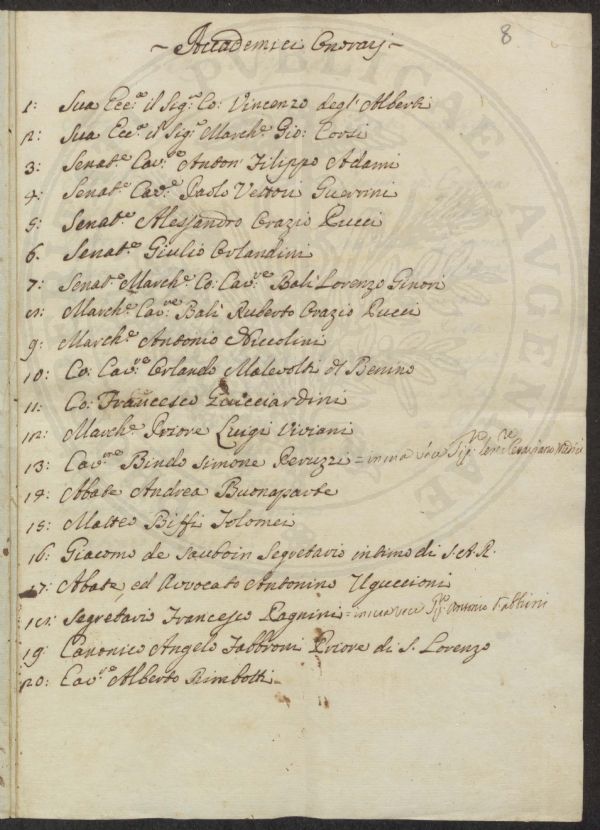 8
~ Accademici Onorarj ~
1: Sua Ecc.ª il Sig.ʳ Co: Vincenzo degl'Alberti
2: Sua Ecc.ª il Sig.ʳ March.ᵉ Gio: Corsi
3: Senat.ᵉ Cav.ʳᵉ Anton' Filippo Adami
4: Senat.ᵉ Cav.ᵉ Paolo Vettori Guerrini
5: Senat.ᵉ Alessandro Orazio Pucci
6. Senat.ᵉ Giulio Orlandini
7: Senat.ᵉ March.ᵉ Co: Cav.ʳᵉ Balì Lorenzo Ginori
8: March.ᵉ Cav.ʳᵉ Balì Ruberto Orazio Pucci
9: March.ᵉ Antonio Niccolini
10: Co: Cav.ʳᵉ Orlando Malevolti del Benino
11: Co: Francesco Guicciardini
12: March.ᵉ Priore Luigi Viviani
13: Cav.ʳᵉ Bindo Simone Peruzzi = in sua vece Sig.ʳᵉ Medici
14: Abate Andrea Buonaparte
15: Matteo Biffi Tolomei
16: Giacomo de Sauboin Segretario intimo di S.A.R.
17: Abate, ed Avvocato Antonino Uguccioni
18: Segretario Francesco Pagnini = in sua vece Sig.ʳᵉ Antonio Fabbrini
19 Canonico Angelo Fabbroni Priore di S. Lorenzo
20: Cav.ʳᵉ Alberto Rimbotti
PUBLICAE AUGE